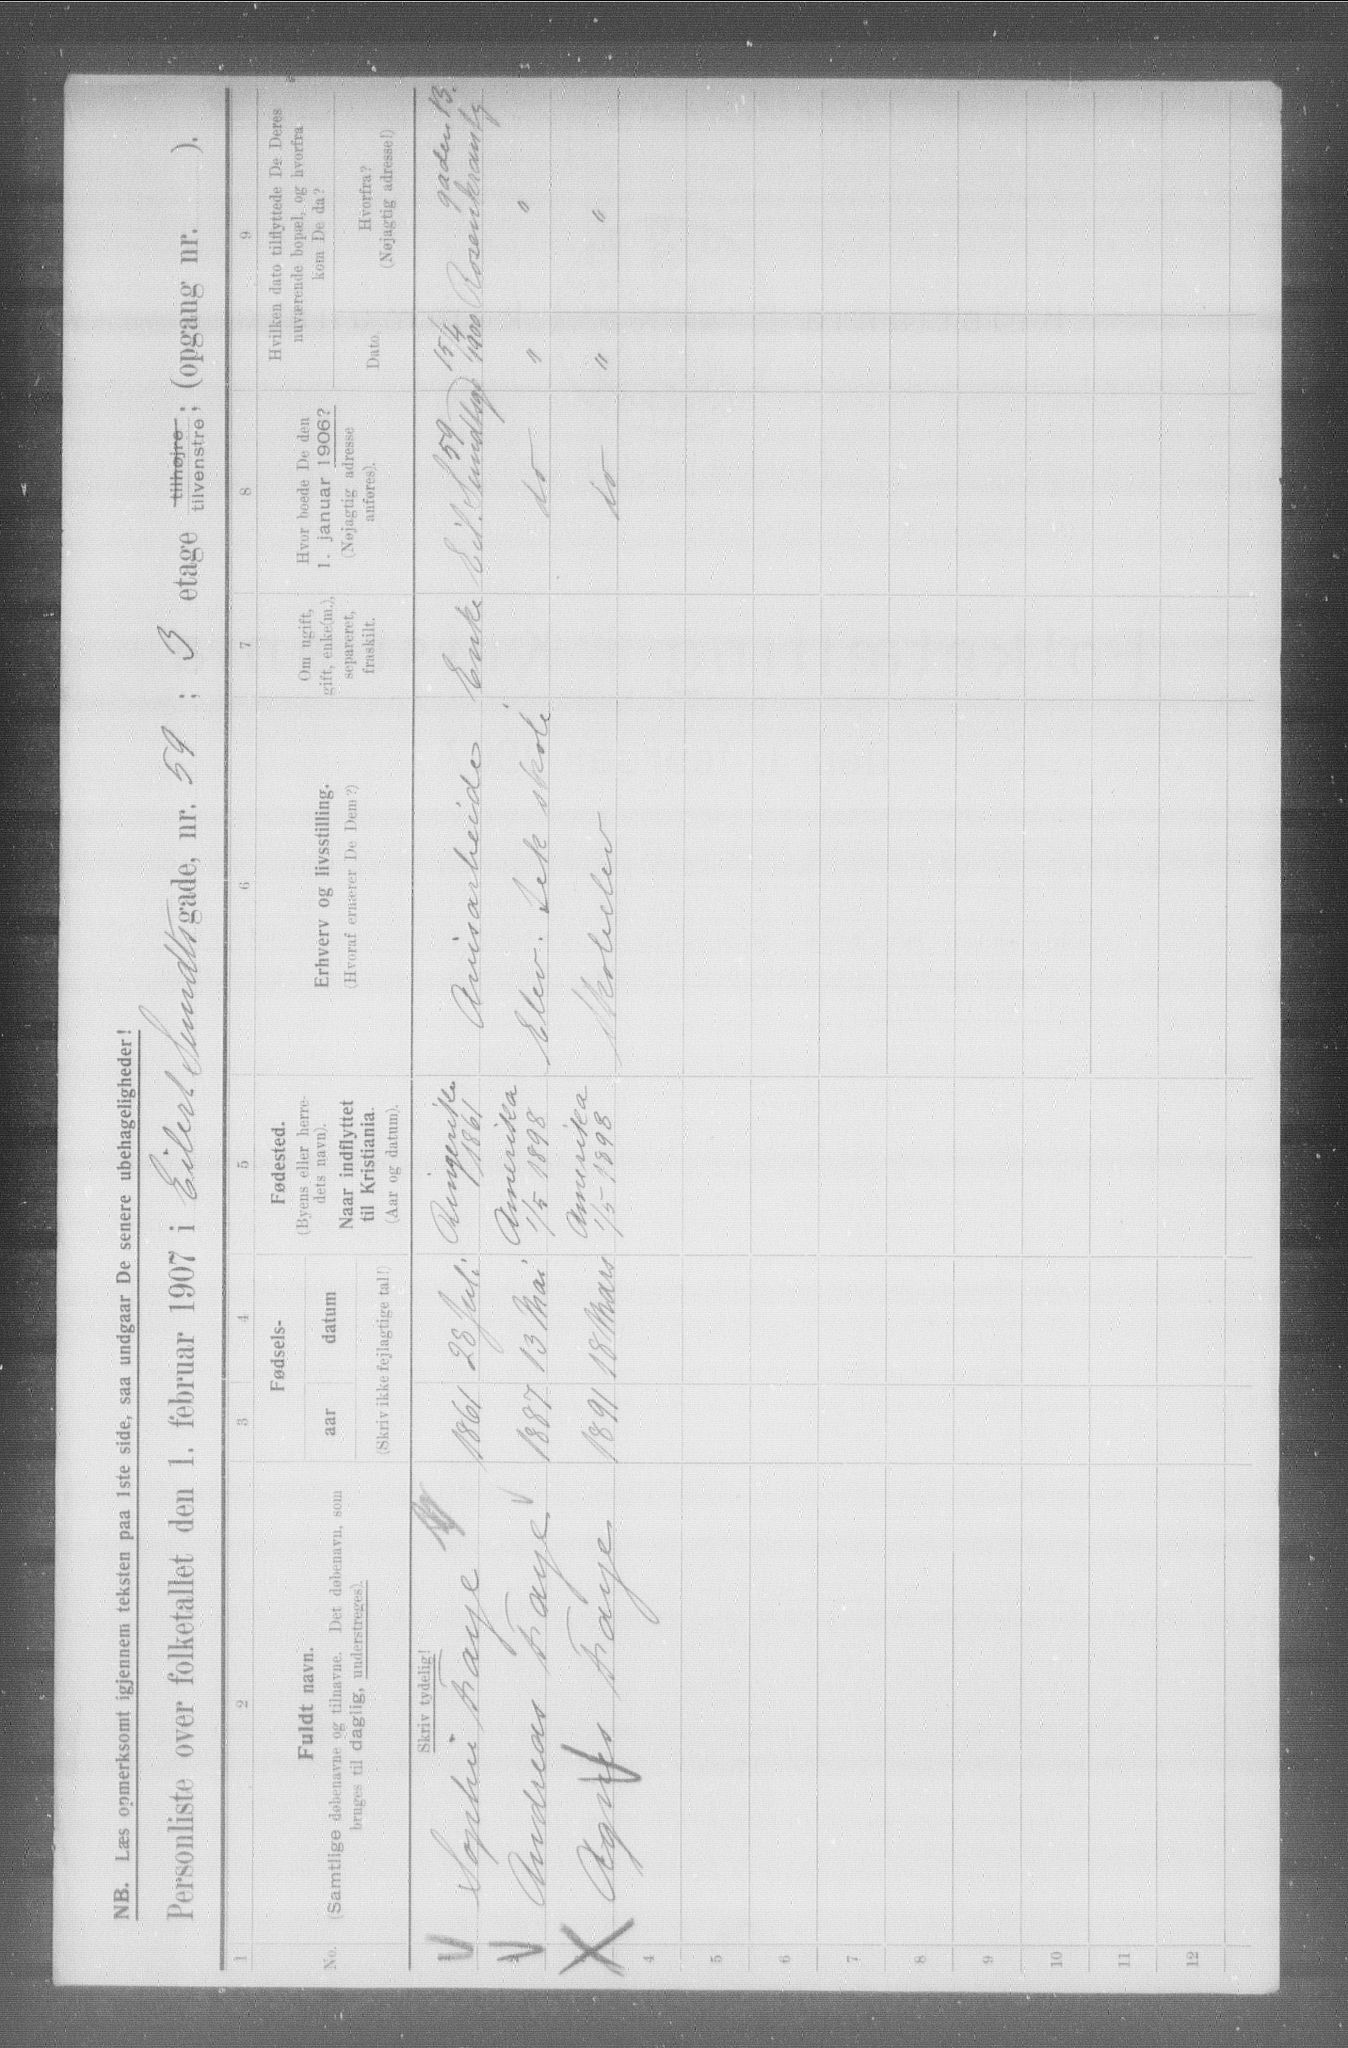 NB. Læs opmerksomt igjennem teksten paa 1ste side, saa undgaar De senere ubehageligheder!
Personliste over folketallet den 1. februar 1907 i Eilert Sundtsgade, nr. 59 ; 3 etage tilhøjre tilvenstre; (opgang nr. ).
1 2 3 4 5 6 7 8 9
No.
Fuldt navn.
(Samtlige døbenavne og tilnavne. Det døbenavn, som
bruges til daglig, understreges).
Fødsels-
aar datum
(Skriv ikke fejlagtige tal!)
Fødested.
(Byens eller herre-
dets navn).
Naar indflyttet
til Kristiania.
(Aar og datum).
Erhverv og livsstilling.
(Hvoraf ernærer De Dem?)
Om ugift,
gift, enke(m.),
separeret,
fraskilt.
Hvor boede De den
1. januar 1906?
(Nøjagtig adresse
anføres).
Hvilken dato tilflyttede De Deres
nuværende bopæl, og hvorfra
kom De da?
Dato
Hvorfra?
(Nøjagtig adresse!)
Skriv tydelig!
1 Sophie Fraye 1861 28 Juli Ringerike 1861 Avisarbeide Enke Eil. Sundtsgd 59 15/4 Rosenkrantz gaden 13.
2 Andreas Fraye 1887 13 Mai Amerika 1/5 1898 Elev. Tek skole do " "
3 Agnes Fraye. 1891 18 Mars Amerika 1/5 1898 Skoleelev do " "
4
5
6
7
8
9
10
11
12